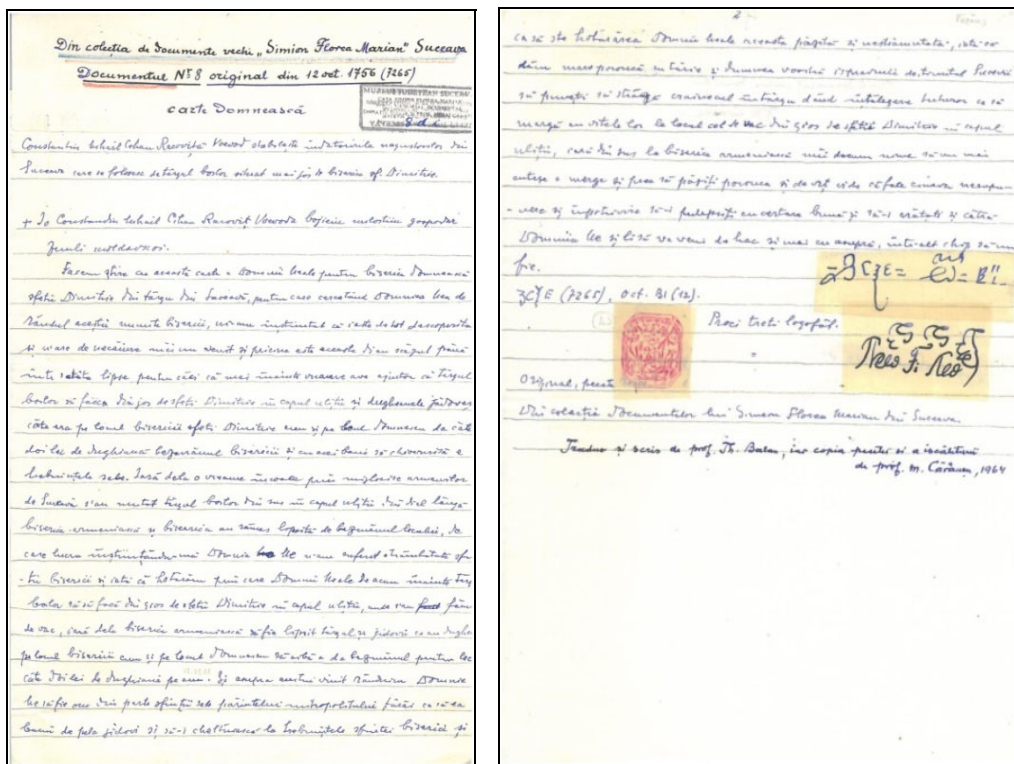 Din colecția de documente vechi „Simion Florea Marian” Suceava
Documentul Nº 8 original din 12 oct. 1756 (7265)
carte Domnească
Constantin Mihail Cehan Racoviță Voevod stabilește îndatoririle negustorilor din
Suceava care se folosesc de târgul boilor situat mai jos de biserica sf. Dimitrie.
+ Io Constandin Mihail Cihan Racoviț Voevoda bojieiu milostiiu gospodar
zemli moldavscoi.
Facem știre cu această carte a Domniei Meale pentru biserica Domnească
sfetii Dimitrie din târgu din Suceavă, pentru care cercetând Domniea Mea de
rândul aceștii numite biserici, ne-am înștiințat că iaste de tot descoperită
și niare de nicăirea nici un venit și pricina este aceasta di au scăpat până
într-atâta lipse pentru căci că mai înainte vreame ave ajutor că târgul
boilor să făcea din jos de sfetii Dimitrie în capul uliții și dughenele jidovești
câte era pe locul bisericii sfetii Dimitrie cum și pe locul Domnescu da câte
doi lei de dughiană bezmănul bisericii și cu acei bani să chivernisă e
trebuințele sale. Iară dela o vreame încoace prin mijlocire armenilor
de Suceavă s'au mutat târgul boilor din sus în capul uliții din deal lângă
biserica armenească și biserica au rămas lipsită de bezmănul locului, de
care lucru înștiințându-mă Domnia Me n-am suferit strâmbătate sfin-
-tei biserici și iată că hotărâm prin care Domnii Meale de acum înainte târgul
boilor să să facă din gios de sfetii Dimitrie în capul uliții, unde s'au făcut
de vac, iară dela biserica armenească să fie lipsit târgul și jidovii ce au dughene
pe locul bisericii cum și pe locul Domnescu să aibă a da bezmănul pentru loc
câte doi lei de dughiană pe an. Și asupra acestui vinit rânduim Domnie
Me să fie om din parte sfinții sale părintelui mitropolitului
banii de pela jidovi și să-i cheltuiască la trebuințele sfintei biserici și
2
ca să ste hotărârea Domnii Meale aceasta păzită și nestrămutată, iată că
dăm mare poroncă cu tărie și dumnea voastră ispravnicii de ținutul Sucevii
să puneți să strige crainicul în târgu dând înțelegere tuturor ca să
margă cu vitele lor la locul cel de vac din gios de sfetii Dimitrie în capul
uliții, iară din sus la biserica armenească mai deacum nime să nu mai
cuteze a merge și prea să păziți poronca și de veți vide că face cineva nesupun
-nere și împotrivire să-i pedepsiți cu certare bună și să-i arătați și cătră
Domnia Me și li să va veni de hac și mai cu asupră, întralt chip să nu
fie.
(7265), Oct. BI (12).
Proci treti logofăt.
Original, pecete
Din colecția documentelor lui Simeon Florea Marian din Suceava.
Tradus și scris de prof. Th. Balan, iar copia pecetii și a iscăliturii
de prof. M. Cărăușu, 1964